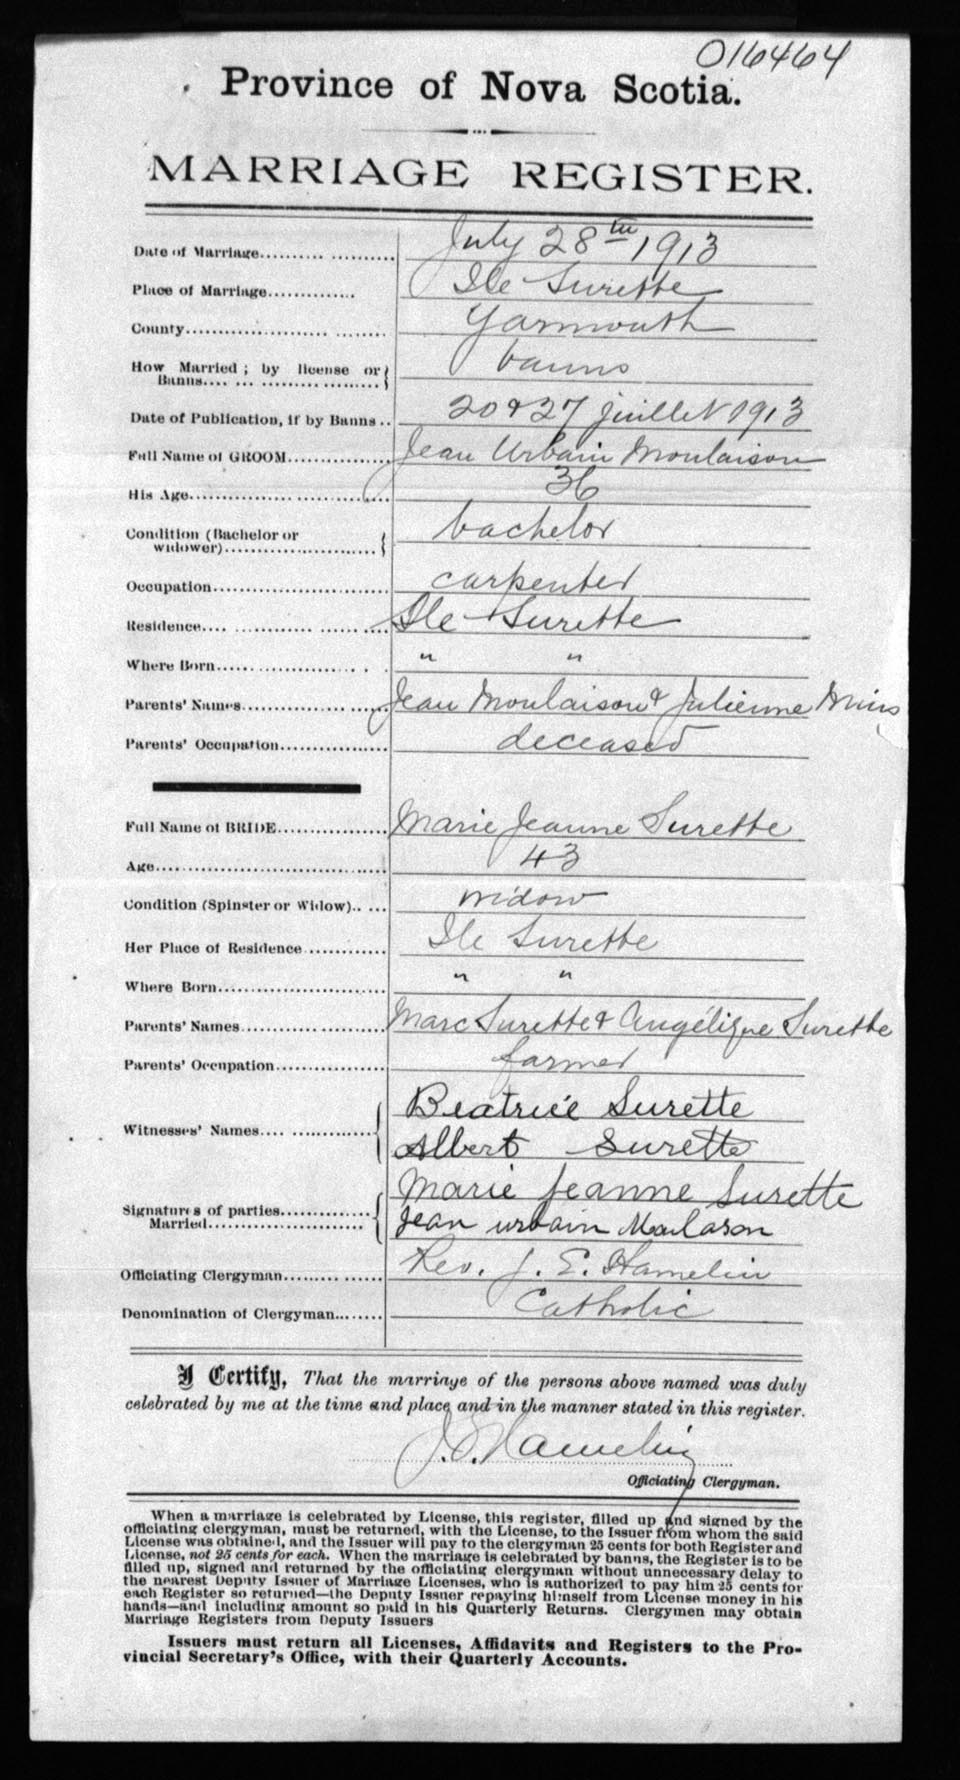 016464
Province of Nova Scotia.
MARRIAGE REGISTER.
Date of Marriage.......... .......... July 28th 1913
Place of Marriage.............. Ile Surette
County....................... ........ Yarmouth
How Married ; by license or
Banns.... ... .................... banns
Date of Publication, if by Banns .. 20 & 27 juillet 1913
Full Name of GROOM................ Jean Urbain Moulaison
His Age................................ 36
Condition (Bachelor or
widower)........................... bachelor
Occupation............................ carpenter
Residence.... .............. ........ Ile Surette
Where Born...................... . . " "
Parents' Names...................... Jean Moulaison & Julienne
Parents' Occupation................. deceased
Full Name of BRIDE................. Marie Jeanne Surette
Age.................................... 43
Condition (Spinster or Widow).. ... widow
Her Place of Residence............. Ile Surette
Where Born.......................... " "
Parents' Names...................... Marc Surette & Angélique Surette
Parents' Occupation................. farmer
Witnesses' Names.... ............... Beatrice Surette
Albert Surette
Signatures of parties............... Marie Jeanne Surette
Married........................ Jean urbain Moulason
Officiating Clergyman......... ...... Rev. J. E. Hamelin
Denomination of Clergyman......... Catholic
I Certify, That the marriage of the persons above named was duly
celebrated by me at the time and place and in the manner stated in this register.
J. E. Hamelin
Officiating Clergyman.
When a marriage is celebrated by License, this register, filled up and signed by the
officiating clergyman, must be returned, with the License, to the Issuer from whom the said
License was obtained, and the Issuer will pay to the clergyman 25 cents for both Register and
License, not 25 cents for each. When the marriage is celebrated by banns, the Register is to be
filled up, signed and returned by the officiating clergyman without unnecessary delay to
the nearest Deputy Issuer of Marriage Licenses, who is authorized to pay him 25 cents for
each Register so returned—the Deputy Issuer repaying himself from License money in his
hands—and including amount so paid in his Quarterly Returns. Clergymen may obtain
Marriage Registers from Deputy Issuers
Issuers must return all Licenses, Affidavits and Registers to the Pro-
vincial Secretary's Office, with their Quarterly Accounts.